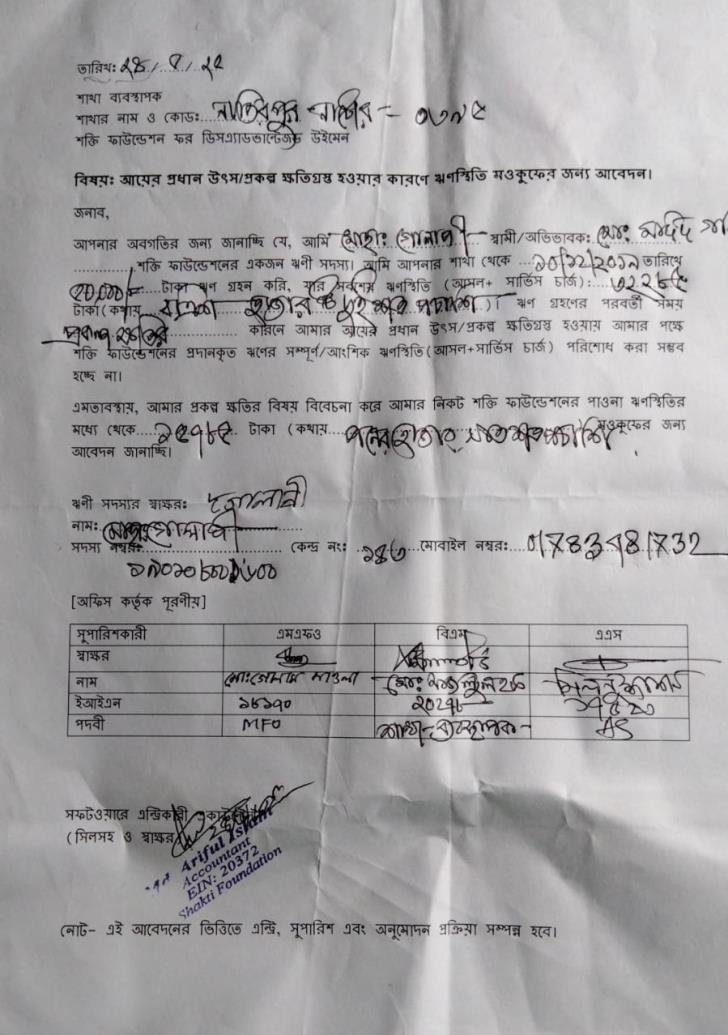 তারিখঃ ২৪/৪/২২
শাখা ব্যবস্থাপক
শাখার নাম ও কোডঃ
শক্তি ফাউন্ডেশন ফর ডিসএ্যাডভান্টেজড উইমেন
বিষয়: আয়ের প্রধান উৎস/প্রকল্প ক্ষতিগ্রস্ত হওয়ার কারণে ঋণস্থিতি মওকুফের জন্য আবেদন।
জনাব,
আপনার অবগতির জন্য জানাচ্ছি যে, আমি মোছাঃ গোলাপী স্বামী/অভিভাবক: মোঃ
শক্তি ফাউন্ডেশনের একজন ঋণী সদস্য। আমি আপনার শাখা থেকে ১০/১২/২০১৯ তারিখে
টাকা ঋণ গ্রহন করি, যার সর্বশেষ ঋণস্থিতি (আসল+ সার্ভিস চার্জ):
টাকা(কথায় বত্রিশ হাজার দুই শত পঁচাশি)। ঋণ গ্রহণের পরবর্তী সময়
প্রকল্প ক্ষতির কারনে আমার আয়ের প্রধান উৎস/প্রকল্প ক্ষতিগ্রস্ত হওয়ায় আমার পক্ষে
শক্তি ফাউন্ডেশনের প্রদানকৃত ঋণের সম্পূর্ণ/আংশিক ঋণস্থিতি(আসল+সার্ভিস চার্জ) পরিশোধ করা সম্ভব
হচ্ছে না।
এমতাবস্থায়, আমার প্রকল্প ক্ষতির বিষয় বিবেচনা করে আমার নিকট শক্তি ফাউন্ডেশনের পাওনা ঋণস্থিতির
মধ্যে থেকে ১৫৭৮৫ টাকা (কথায় পনের হাজার সাতশত পঁচাশি) মওকুফের জন্য
আবেদন জানাচ্ছি।
ঋণী সদস্যর স্বাক্ষরঃ গোলাপী
নাম: মোছাঃ গোলাপী
সদস্য নম্বরঃ কেন্দ্র নং: মোবাইল নম্বর: 01783481732
[অফিস কর্তৃক পূরণীয়]
সুপারিশকারী এমএফও বিএম এএস
স্বাক্ষর
নাম
ইআইএন ১৮১৯০ ২০২৭৮
পদবী MFO শাখা ব্যবস্থাপক AS
সফটওয়্যারে এন্ট্রিকারী
(সিলসহ ও স্বাক্ষর)
Ariful Islam
Accountant
EIN: 20372
Shakti Foundation
নোট- এই আবেদনের ভিত্তিতে এন্ট্রি, সুপারিশ এবং অনুমোদন প্রক্রিয়া সম্পন্ন হবে।